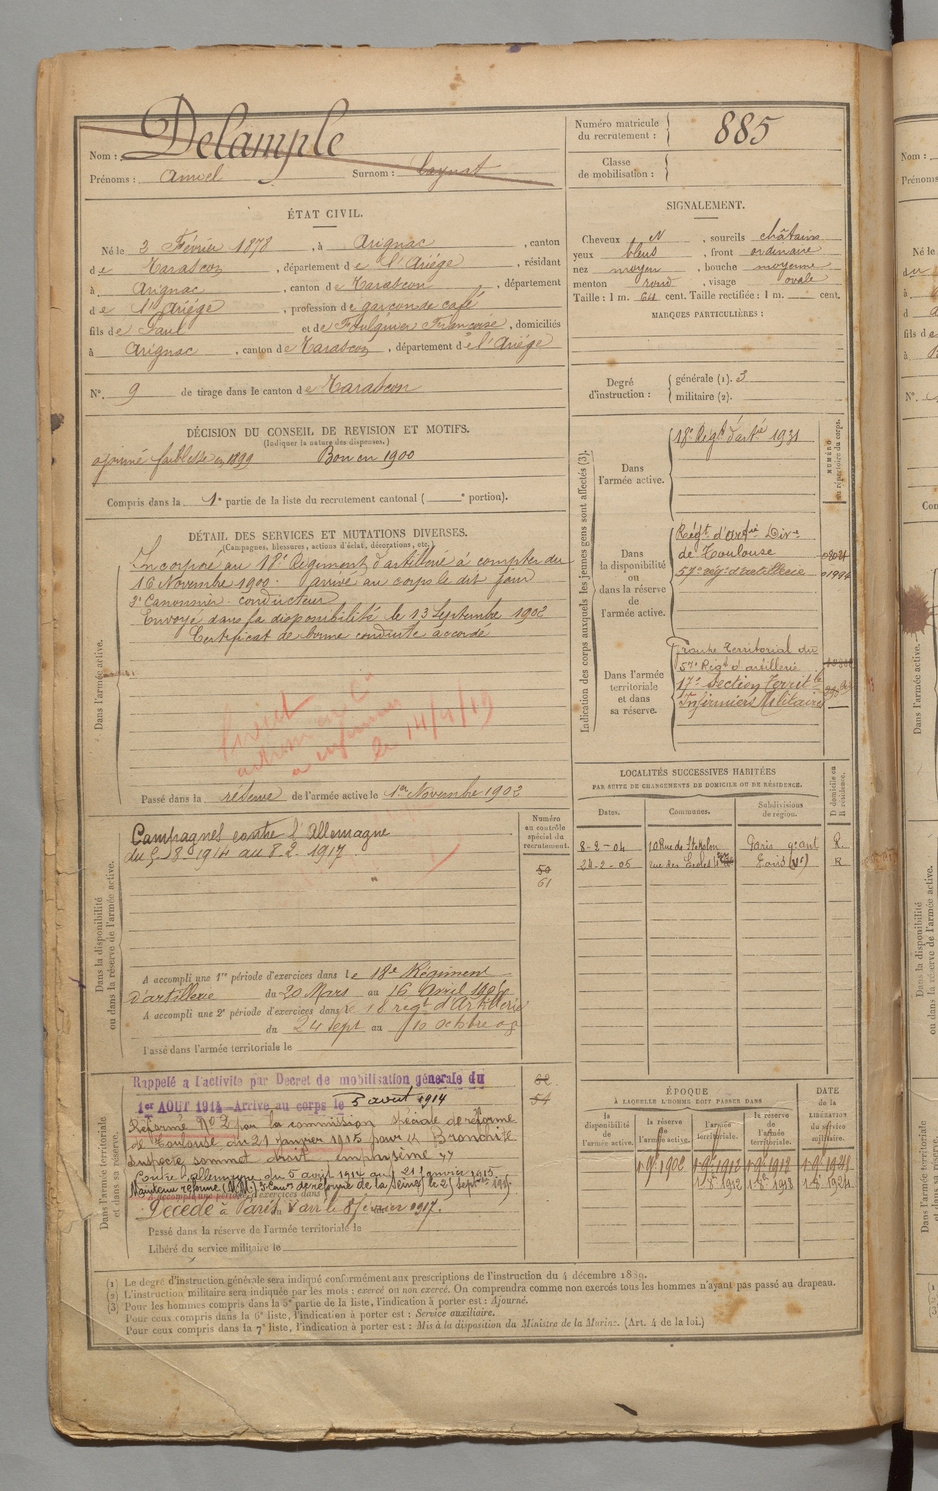 Nom : Delample
Prénoms : Amiel Surnom :
Numéro matricule du recrutement : 885
Classe de mobilisation :
ÉTAT CIVIL.
Né le 2 Février 1878, à Arignac, canton
de Tarascon, département de l'Ariège, résidant
à Arignac, canton de Tarascon, département
de l'Ariège, profession de garçon de café
fils de Paul et de Foulquier Françoise, domiciliés
à Arignac, canton de Tarascon, département de l'Ariège
N° 9 de tirage dans le canton de Tarascon
SIGNALEMENT.
Cheveux N, sourcils châtains
yeux bleus, front ordinaire
nez moyen, bouche moyenne
menton rond, visage ovale
Taille : 1 m. 64 cent. Taille rectifiée : 1 m. cent.
MARQUES PARTICULIÈRES :
Degré d'instruction : générale (1). 3
militaire (2).
DÉCISION DU CONSEIL DE REVISION ET MOTIFS.
(Indiquer la nature des dispenses.)
ajourné faiblesse en 1899 Bon en 1900
Compris dans la 1e partie de la liste du recrutement cantonal ( portion).
DÉTAIL DES SERVICES ET MUTATIONS DIVERSES.
(Campagnes, blessures, actions d'éclat, décorations, etc.)
Dans l'armée active.
Incorporé au 18e Régiment d'artillerie à compter du
16 Novembre 1900. arrivé au corps le dit jour
2e Canonnier conducteur
Envoyé dans la disponibilité le 13 Septembre 1902
Certificat de bonne conduite accordé
le 14/4/19
Passé dans la réserve de l'armée active le 1er Novembre 1902
Indication des corps auxquels les jeunes gens sont affectés (3).
NUMÉRO au répertoire du corps.
Dans l'armée active.
18e Régt d'artie 1931
Dans la disponibilité ou dans la réserve de l'armée active.
Régt d'artie Divre
de Toulouse
57e régt d'artillerie 01994
Dans l'armée territoriale et dans sa réserve.
Groupe Territorial du
57e Régt d'artillerie
17e Section Territle
Infirmiers Militaires
LOCALITÉS SUCCESSIVES HABITÉES
PAR SUITE DE CHANGEMENTS DE DOMICILE OU DE RÉSIDENCE.
Dates. Communes. Subdivisions de région. D domicile ou R résidence.
8-2-04 Paris R.
24-2-05 rue des Ecoles R
Dans la disponibilité ou dans la réserve de l'armée active.
Numéro au contrôle spécial du recrutement.
50
61
Campagnes contre l'Allemagne
du 5-8-1914 au 8-2-1917
A accompli une 1re période d'exercices dans le 18e Régiment
d'artillerie du 20 Mars au 16 Avril 1906
A accompli une 2e période d'exercices dans le 18 régt d'Artillerie
du 24 sept au 10 octobre 08
Passé dans l'armée territoriale le
Dans l'armée territoriale et dans sa réserve.
Rappelé à l'activité par Decret de mobilisation générale du
1er AOUT 1914 Arrivé au corps le 5 aout 1914
Réformé N° 2 par la commission spéciale de réforme
de Toulouse du 21 janvier 1915 pour Bronchite
suspecte sommet droit emphysème
Contre l'allemagne du 5 août 1914 au 21 janvier 1915
Maintenu réformé
Décédé à Paris le 8 février 1917.
Passé dans la réserve de l'armée territoriale le
Libéré du service militaire le
ÉPOQUE
À LAQUELLE L'HOMME DOIT PASSER DANS
DATE de la LIBÉRATION du service militaire.
la disponibilité de l'armée active. la réserve de l'armée active. l'armée territoriale. la réserve de l'armée territoriale.
(1) Le degré d'instruction générale sera indiqué conformément aux prescriptions de l'instruction du 4 décembre 1889.
(2) L'instruction militaire sera indiquée par les mots : exercé ou non exercé. On comprendra comme non exercés tous les hommes n'ayant pas passé au drapeau.
(3) Pour les hommes compris dans la 5e partie de la liste, l'indication à porter est : Ajourné.
Pour ceux compris dans la 6e liste, l'indication à porter est : Service auxiliaire.
Pour ceux compris dans la 7e liste, l'indication à porter est : Mis à la disposition du Ministre de la Marine. (Art. 4 de la loi.)